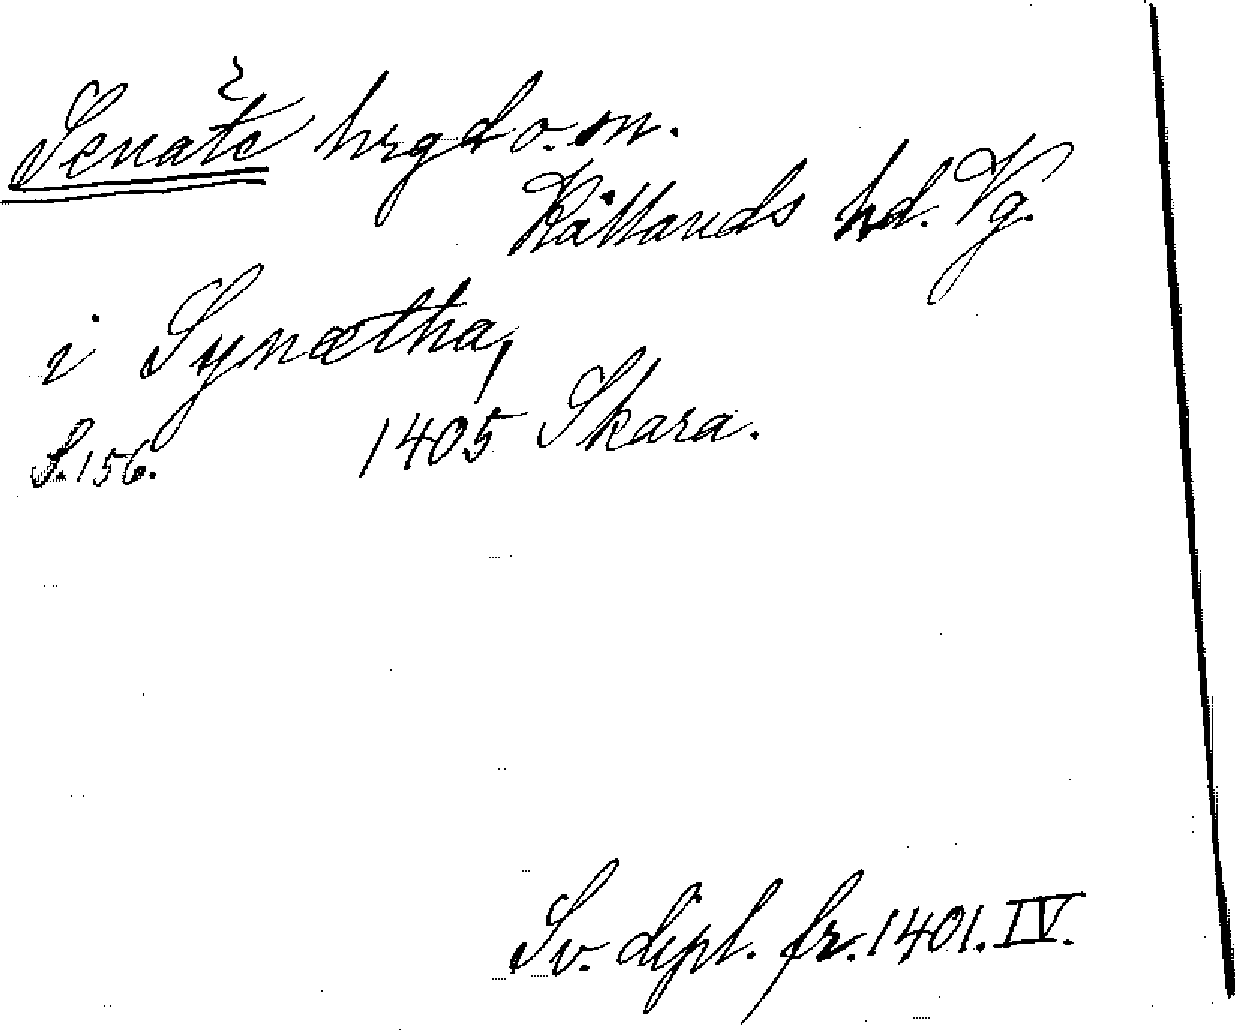 Senäte hrgd o. sn.
Kållands hd. Vg.
i Synætha,
S. 156. 1405 Skara.
Sv. dipl. fr. 1401. IV.